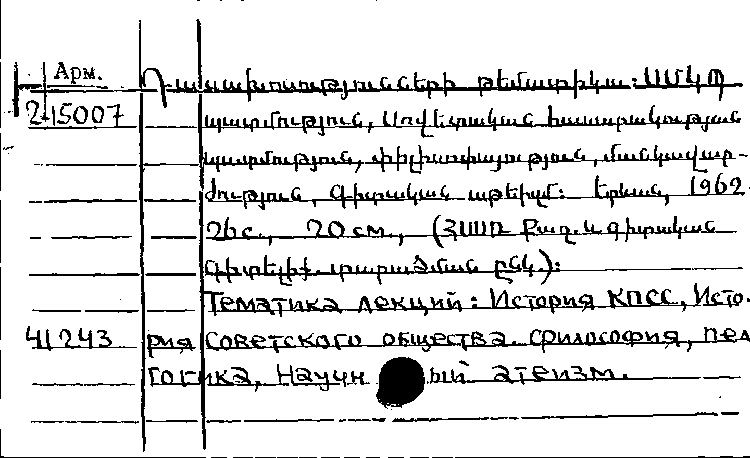 Арм.
Դասախոսությունների թեմատիկա: ՍՄԿՊ
2-15007 պատմություն, Սովետական հասարակության
պատմություն, փիլիսոփայություն, մանկավար-
ժություն, Գիտական աթեիզմ: Երևան, 1962.
26с., 20см., (ՀՍՍՌ Քաղ. և գիտական
գիտելիք. տարածման ընկ.):
Тематика лекций: История КПСС, Исто-
41243 рия Советского общества. Философия, пед
гогика, Научн ый атеизм.